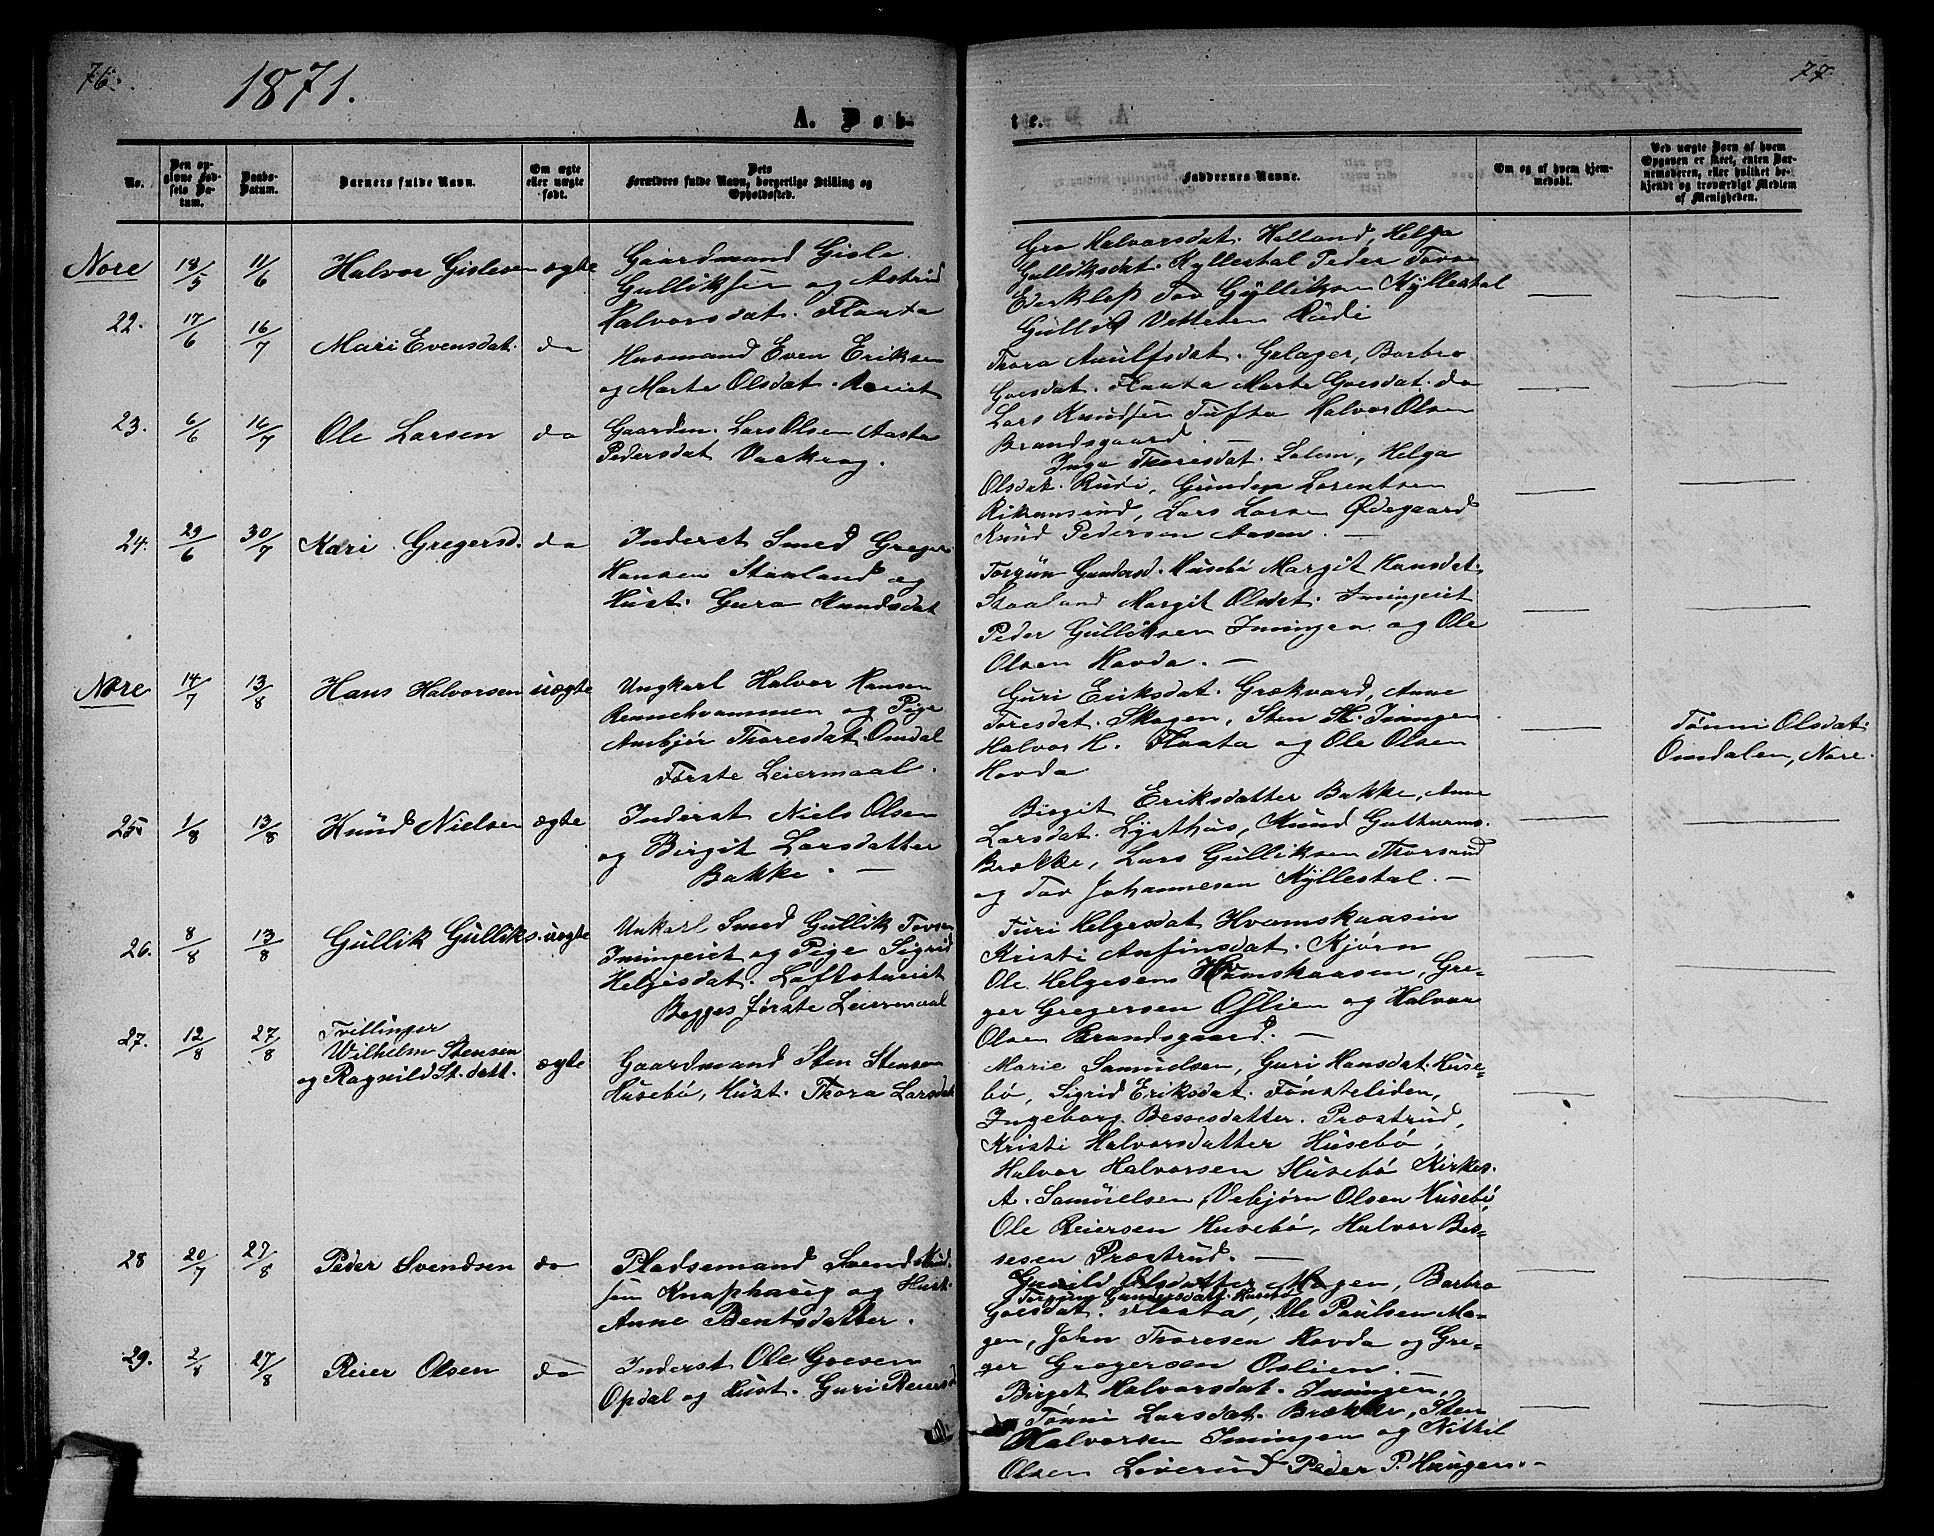 76.
1871.
A. Døb-
No.
Den op-
givne Fød-
sels Da-
tum.
Daabs-
Datum.
Barnets fulde Navn.
Om ægte
eller uægte
født.
Dets
Forældres fulde Navn, borgerlige Stilling og
Opholdssted.
Nore 18/5 11/6 Halvor Gislesen ægte
Gaardmand Gisle
Gulliksen og Astrid
Halvorsdat. Flaata
22. 17/6 16/7 Mari Evensdat. do
Husmand Even Eriksen
og Marte Olsdat.
23. 6/6 16/7 Ole Larsen do
Gaarden. Lars Olsen Aasta
Pedersdat
24. 29/6 30/7 Kari Gregersd. do
Inderst Smed Greger
Hansen Staaland og
Hust. Guro Knudsdat
Nore 14/7 13/8 Hans Halvorsen uægte
Ungkarl Halvor Hansen
Rennehvammen og Pige
Ambjør Thoresdat. Omdal
Første Leiermaal.
25 1/8 13/8 Knud Nielsen ægte
Inderst Niels Olsen
og Birgit Larsdatter
Bakke. —
26. 8/8 13/8 Gullik Gulliks. uægte
Unkarl Smed Gullik Tovsen
Imingeiet og Pige Sigrid
Helgesdat. Loftstueiet
Begges første Leiermaal
27. 12/8 27/8 Tvillinger
Wilhelm Stensen
og Ragnild St. datt. ægte
Gaardmand Sten Stensen
Husebø, Hust. Thora Larsdat
28 20/7 27/8 Peder Svendsen do
Pladsemand Svend Knud-
sen Knaphaug og Hust.
Anne Bentsdatter.
29. 2/8 27/8 Reier Olsen do
Inderst Ole Goesen
Opdal og Hust. Guri Reiersd
77.
te.
Faddernes Navne.
Om og af hvem hjem-
medøbt.
Ved uægte Børn af hvem
Opgaven er skeet, enten Bar-
nemoderen, eller hvilket be-
kjendt og troværdigt Medlem
af Menigheden.
Gro Halvorsdat. Holland, Helga
Gulliksdat. Kyllestal Peder Tovsen
Eidsklep Tov Gulliksen Kyllestal
Gullik Vettelsen Rudi
Thora Anulfsdat. Gelager, Barbro
Goesdat. Flaata Marte Goesdat. do
Lars Knudsen Tufta Halvor Olsen
Brandsgaard. —
Inga Thoresdat. Solem, Helga
Olsdat. Rudi, Lorentsen
Lars Larsen Ødegaard
Knud Pedersen Aasen. —
Torgun Gundersd. Husebø Margit Hansdat.
Staaland Margit Olsdat. Imingeiet
Peder Gulliksen Imingen og Ole
Olsen Hovda. —
Guri Eriksdat. Grækvard, Anne
Toresdat. Skogen, Sten H. Imingen
Halvor H. Flaata og Ole Olsen
Hovda
Tønni Olsdat.
Omdalen, Nore.
Birgit Eriksdatter Bakke, Anne
Larsdat. Lysthus, Knud Gutturms.
Brække, Lars Gulliksen Thorsrud
og Tov Johannesen Kyllestal. —
Turi Helgesdat Hvamskaasin
Kristi Anfinsdat. Kjørn
Ole Helgesen Hvamskaasen, Gre-
ger Gregersen Oslien og Halvor
Olsen Brandsgaard. —
Marie Samuelsen, Guri Hansdat. Huse-
bø, Sigrid Eriksdat. Tønsteliden,
Ingeborg Bessesdatter. Præstrud,
Kristi Halvorsdatter Husebø,
Halvor Halvorsen Husebø Kirkes.
A. Samuelsen, Vebjørn Olsen Husebø,
Ole Reiersen Husebø, Halvor Bes-
sesen Præstrud. —
Gunild Olsdatter Mogen, Barbro
Torgun Gundersdatt. Husebø
Goesdat. Flaata, Ole Paulsen Mo-
gen, John Thoresen Hovda og Gre-
ger Gregersen Oslien. —
Birget Halvorsdat. Imingen,
Tønni Larsdat. Brække, Sten
Halvorsen Imingen og Nittil
Olsen Liverud Peder P. Haugen. —